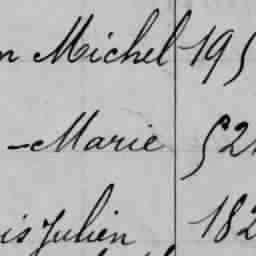 n Michel 195
- Marie 521
is Julien 182